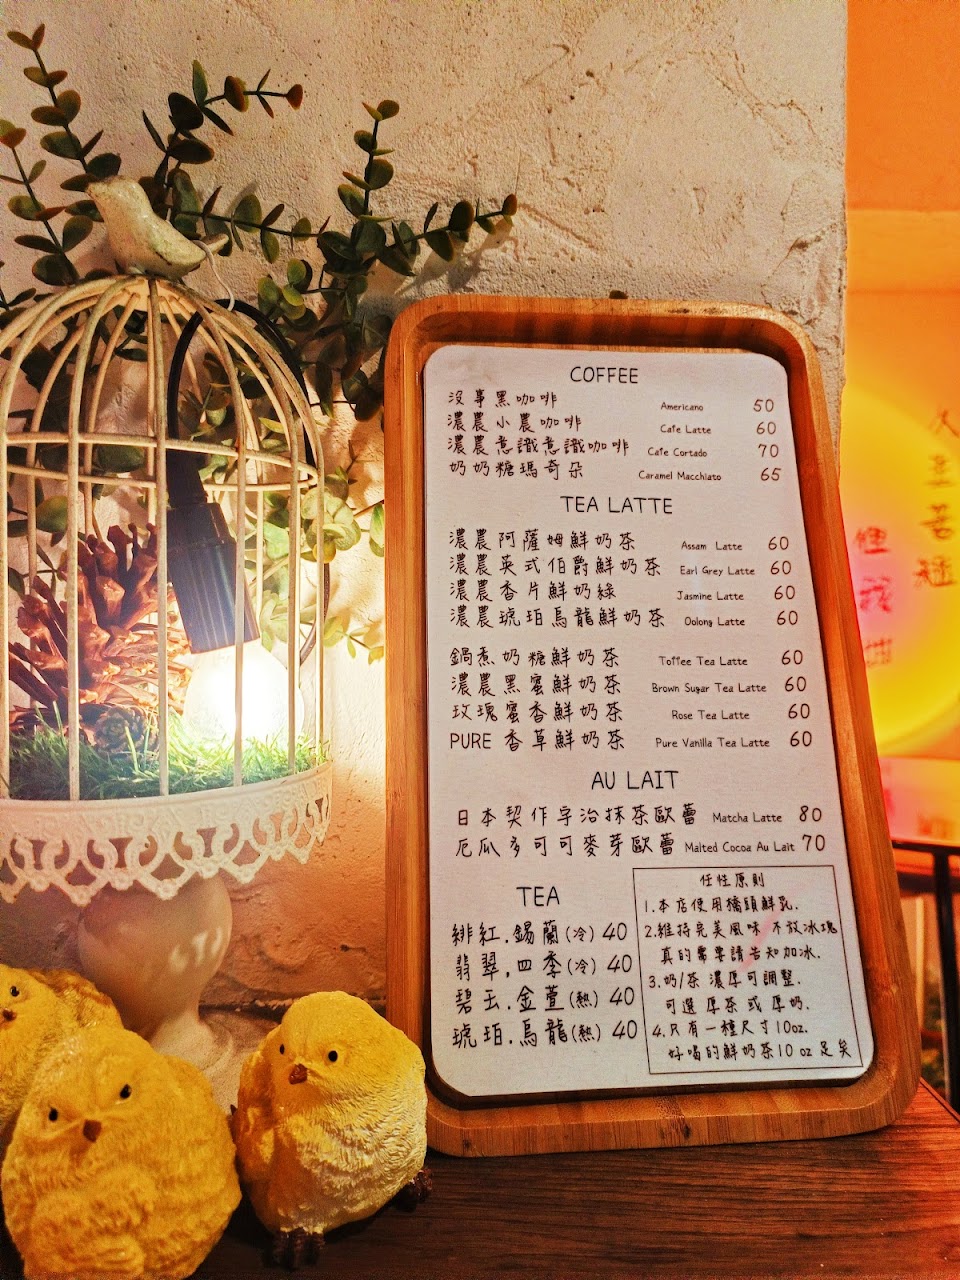 COFFEE
沒事黑咖啡 Americano 50
濃農小農咖啡 Cafe Latte 60
濃農意識意識咖啡 Cafe Cortado 70
奶奶糖瑪奇朵 Caramel Macchiato 65
TEA LATTE
濃農阿薩姆鮮奶茶 Assam Latte 60
濃農英式伯爵鮮奶茶 Earl Grey Latte 60
濃農香片鮮奶綠 Jasmine Latte 60
濃農琥珀烏龍鮮奶茶 Oolong Latte 60
鍋煮奶糖鮮奶茶 Toffee Tea Latte 60
濃農黑蜜鮮奶茶 Brown Sugar Tea Latte 60
玫瑰蜜香鮮奶茶 Rose Tea Latte 60
PURE 香草鮮奶茶 Pure Vanilla Tea Latte 60
AU LAIT
日本契作宇治抹茶歐蕾 Matcha Latte 80
厄瓜多可可麥芽歐蕾 Malted Cocoa Au Lait 70
TEA
緋紅.錫蘭(冷) 40
翡翠.四季(冷) 40
碧玉.金萱(熱) 40
琥珀.烏龍(熱) 40
任性原則
1.本店使用橋頭鮮乳.
2.維持完美風味 不放冰塊
真的需要請告知加冰.
3.奶/茶 濃厚可調整.
可選厚茶或厚奶.
4.只有一種尺寸10oz.
好喝的鮮奶茶10 oz 足矣